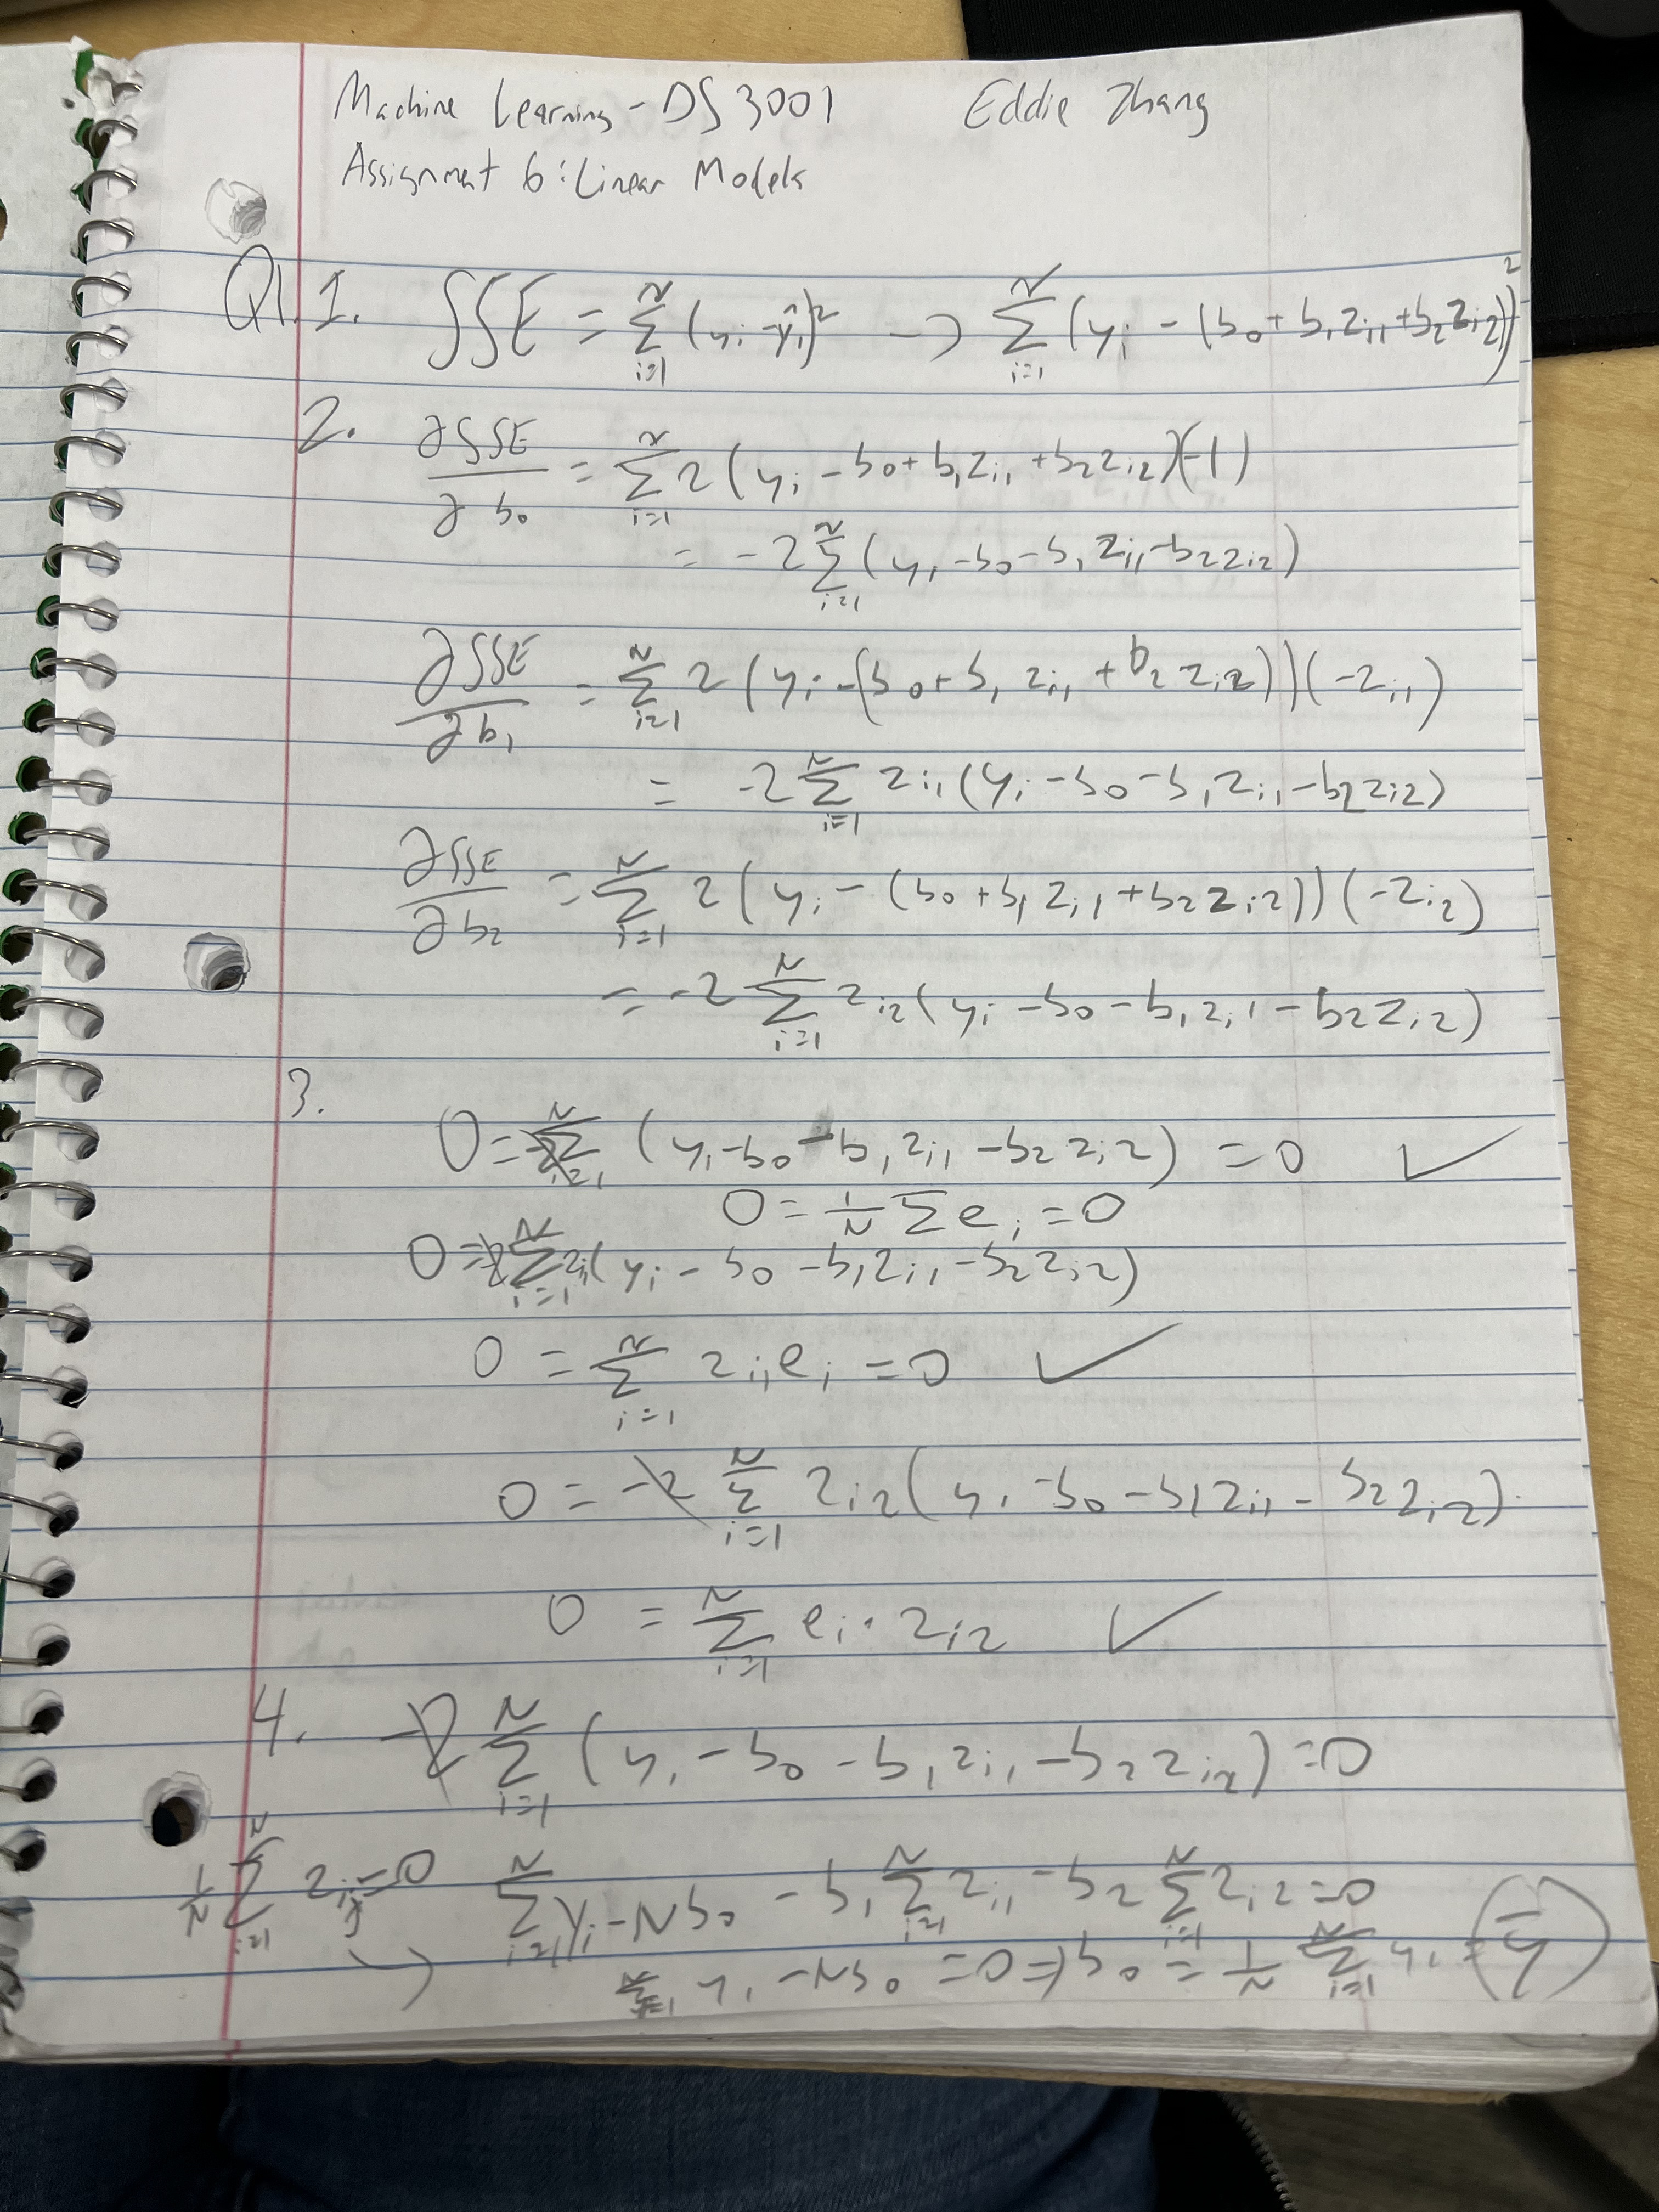 Machine Learning - DS 3001 Eddie Zhang
Assignment 6: Linear Models
Q1. 1. SSE = Σ_{i=1}^{N} (y_i - ŷ_i)^2 → Σ_{i=1}^{N} (y_i - (b_0 + b_1 z_{i1} + b_2 z_{i2}))^2
2. ∂SSE/∂b_0 = Σ_{i=1}^{N} 2(y_i - b_0 + b_1 z_{i1} + b_2 z_{i2})(-1)
= -2 Σ_{i=1}^{N} (y_i - b_0 - b_1 z_{i1} - b_2 z_{i2})
∂SSE/∂b_1 = Σ_{i=1}^{N} 2(y_i - (b_0 + b_1 z_{i1} + b_2 z_{i2}))(-z_{i1})
= -2 Σ_{i=1}^{N} z_{i1}(y_i - b_0 - b_1 z_{i1} - b_2 z_{i2})
∂SSE/∂b_2 = Σ_{i=1}^{N} 2(y_i - (b_0 + b_1 z_{i1} + b_2 z_{i2}))(-z_{i2})
= -2 Σ_{i=1}^{N} z_{i2}(y_i - b_0 - b_1 z_{i1} - b_2 z_{i2})
3.
0 = Σ_{i=1}^{N} (y_i - b_0 - b_1 z_{i1} - b_2 z_{i2}) = 0 ✓
0 = 1/N Σ e_i = 0
0 = Σ_{i=1}^{N} z_{i1}(y_i - b_0 - b_1 z_{i1} - b_2 z_{i2})
0 = Σ_{i=1}^{N} z_{i1} e_i = 0 ✓
0 = -2 Σ_{i=1}^{N} z_{i2}(y_i - b_0 - b_1 z_{i1} - b_2 z_{i2})
0 = Σ_{i=1}^{N} e_i · z_{i2} ✓
4. -2 Σ_{i=1}^{N} (y_i - b_0 - b_1 z_{i1} - b_2 z_{i2}) = 0
1/N Σ_{i=1}^{N} z_{ij} = 0 Σ_{i=1}^{N} y_i - N b_0 - b_1 Σ_{i=1}^{N} z_{i1} - b_2 Σ_{i=1}^{N} z_{i2} = 0
→ Σ_{i=1}^{N} y_i - N b_0 = 0 ⇒ b_0 = 1/N Σ_{i=1}^{N} y_i = ȳ